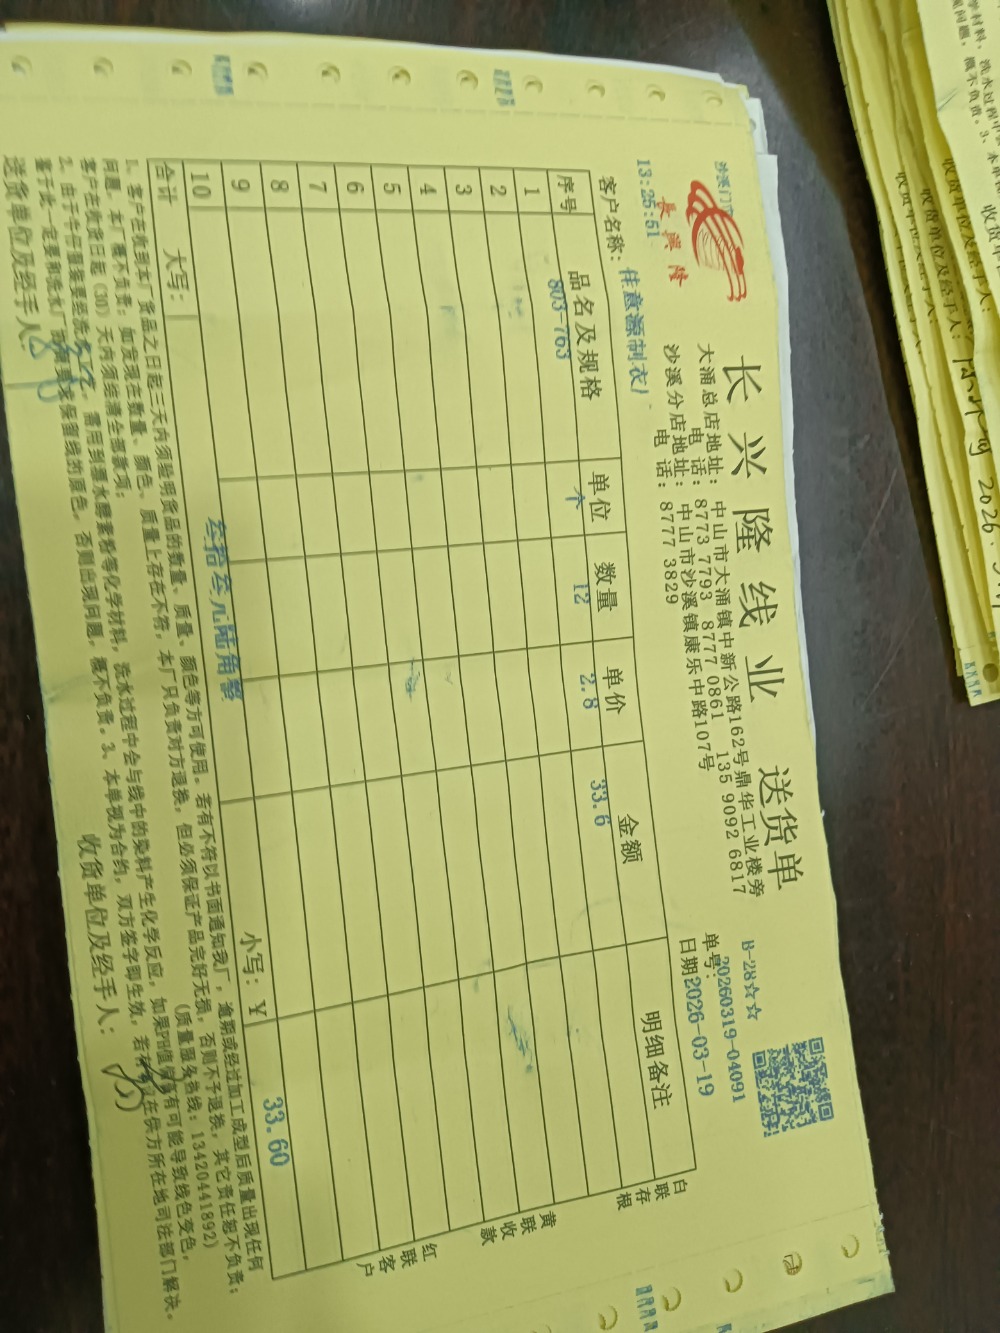 沙溪门市
13:25:51
長興隆
长兴隆线业 送货单
大涌总店地址：中山市大涌镇中新公路162号鼎华工业楼旁
电 话：8773 7793 8777 0861 135 9092 6817
沙溪分店地址：中山市沙溪镇康乐中路107号
电 话：8777 3829
B-28☆☆
单号：20260319-04091
日期2026-03-19
客户名称：佳意源制衣厂
序号 品名及规格 单位 数量 单价 金额 明细备注
1 803-763 个 12 2.8 33.6
2
3
4
5
6
7
8
9
10
合计 大写：叁拾叁元陆角整 小写：￥ 33.60
白联存根
黄联收款
红联客户
1、客户在收到本厂货品之日起三天内须验明货品的数量、质量、颜色等方可使用。若有不符以书面通知我厂，逾期或经过加工成型后质量出现任何
问题，本厂概不负责；如发现在数量、颜色、质量上存在不符，本厂只负责对方退换，但必须保证产品完好无损，否则不予退换，其它责任恕不负责；
客户在收货日起（30）天内须结清全部款项； (质量服务热线：13420441892)
2、由于牛仔值装要经洗水工艺，需用到漂水酵素粉等化学材料，洗水过程中会与线中的染料产生化学反应，如果PH值偏高有可能导致线色变色，
鉴于此一定要和洗水厂 保留线的原色，否则出现问题，概不负责。3、本单视为合约，双方签字即生效，若有 在供方所在地司法部门解决。
送货单位及经手人：
收货单位及经手人：
学材料，洗水过程中
现问题，概不负责。3、本单
收货单位及经手人：
收货单位及经手人：
收货单位及经手人：
2026.